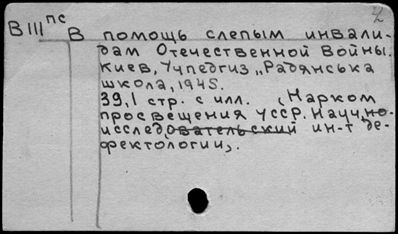 2
В III пс
В помощь слепым инвали-
дам Отечественной Войны.
Киев, Учпедгиз „Радянська
школа, 1945.
39,1 стр. с илл. (Нарком
просвещения УССР. Науч, но-
исследовательский ин-т де-
фектологии).